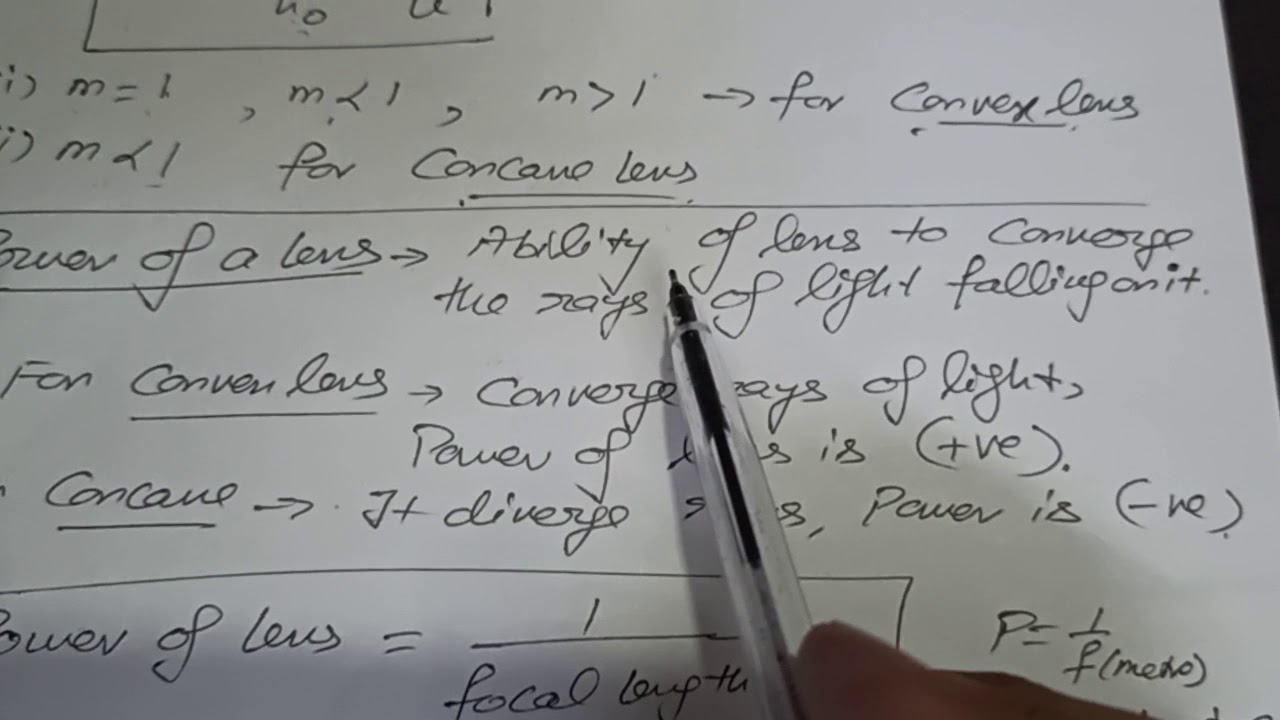 i) m = 1 , m < 1 , m > 1 → for Convex lens
i) m < 1 for Concave lens
Power of a lens → Ability of lens to converge
the rays of light falling on it.
For Convex lens → Converge rays of light,
Power of lens is (+ve).
Concave → It diverge rays, Power is (-ve)
Power of lens = 1
focal length
P = 1
f(metre)